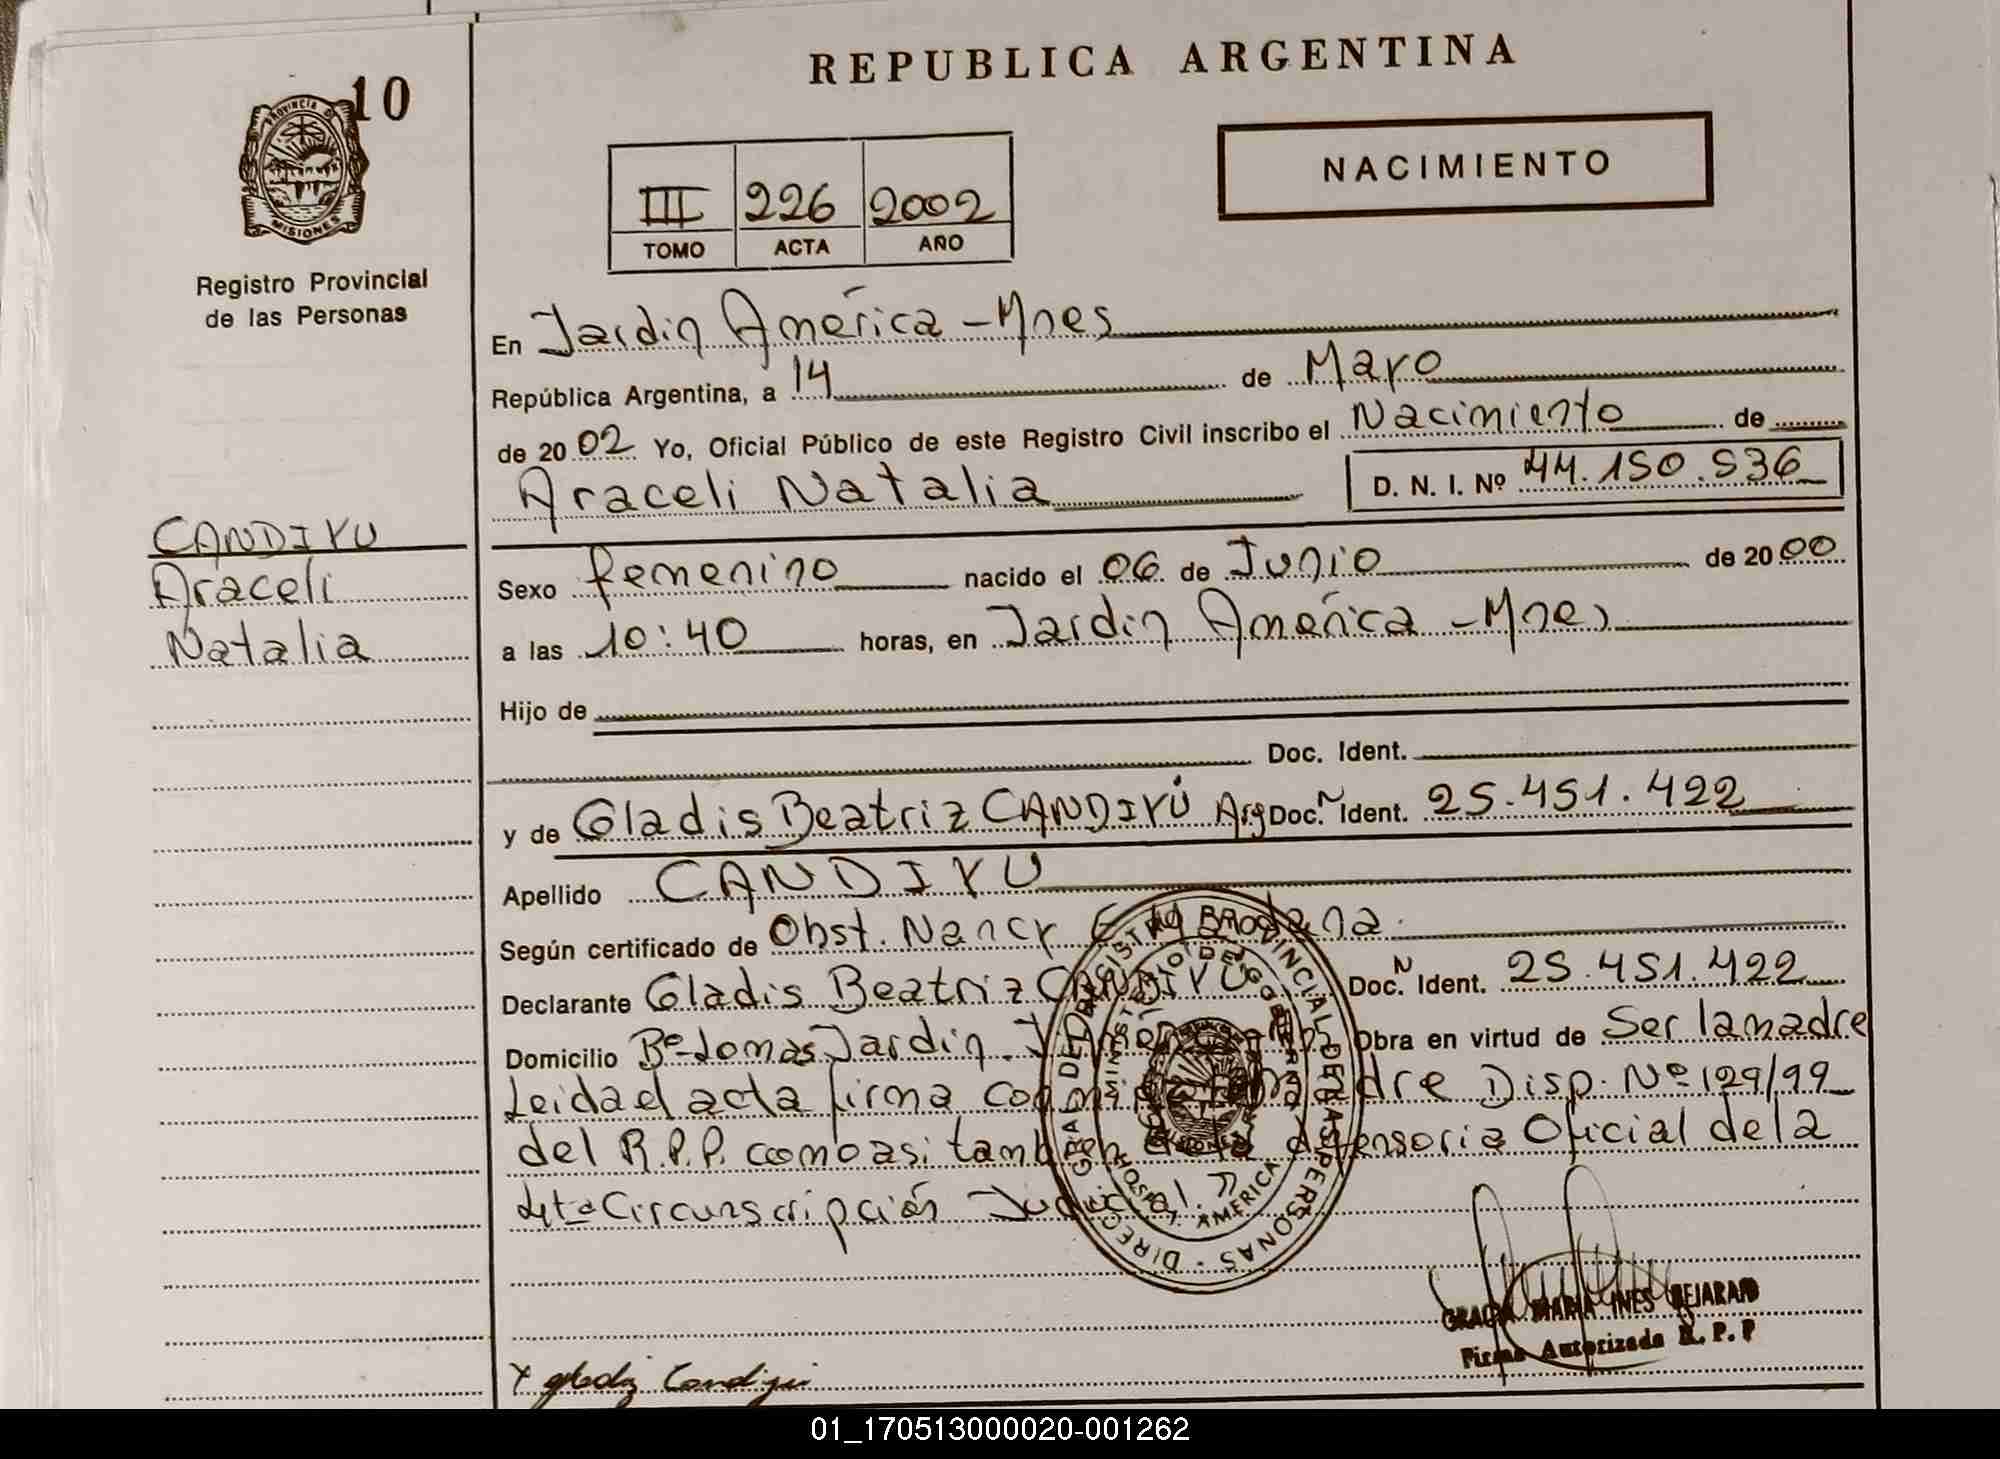 REPUBLICA ARGENTINA
10
PROVINCIA DE
MISIONES
Registro Provincial
de las Personas
NACIMIENTO
III 226 2002
TOMO ACTA AÑO
En Jardin América - Mnes
República Argentina, a 14 de Mayo
de 2002 Yo, Oficial Público de este Registro Civil inscribo el Nacimiento de
Araceli Natalia D. N. I. Nº 44.150.536
CANDIYU
Araceli
Natalia
Sexo femenino nacido el 06 de Junio de 2000
a las 10:40 horas, en Jardin América - Mnes
Hijo de
Doc. Ident.
y de Gladis Beatriz CANDIYÚ Arg Doc. N Ident. 25.451.422
Apellido CANDIYU
Según certificado de Obst. Nancy
Declarante Gladis Beatriz CANDIYU Doc. N Ident. 25.451.422
Domicilio Bº Lomas Jardin Obra en virtud de Ser la madre
Leida el acta firma Disp. Nº 129/99
del R.P.P. como asi defensoria Oficial de la
4ta Circunscripción Judicial.
DIRECC. GRAL DEL REGISTRO PROVINCIAL DE LAS PERSONAS
AMERICA
GRACIA MARIA INES BEJARANO
Firma Autorizada R. P. P
x gladiz Candiyu
01_170513000020-001262